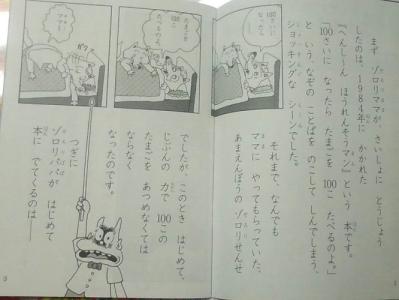 まず ゾロリママが、さいしょに とうじょう
したのは、1984年に かかれた
『へんしーん ほうれんそうマン』という 本です。
「100さいに なったら たまごを 100こ たべるのよ。」
と いう、なぞの ことばを のこして しんでしまう、
ショッキングな シーンでした。
それまで、なんでも
ママに やってもらっていた、
あまえんぼうの ゾロリせんせ
100さいに
なったら
たまごを
100こ
たべるのよ
ママー!
ガクッ
でしたが、このとき はじめて、
じぶんの 力で 100この
たまごを あつめなくては
ならなく
なったのです。
つぎに
ゾロリパパが はじめて
本に でてくるのは——